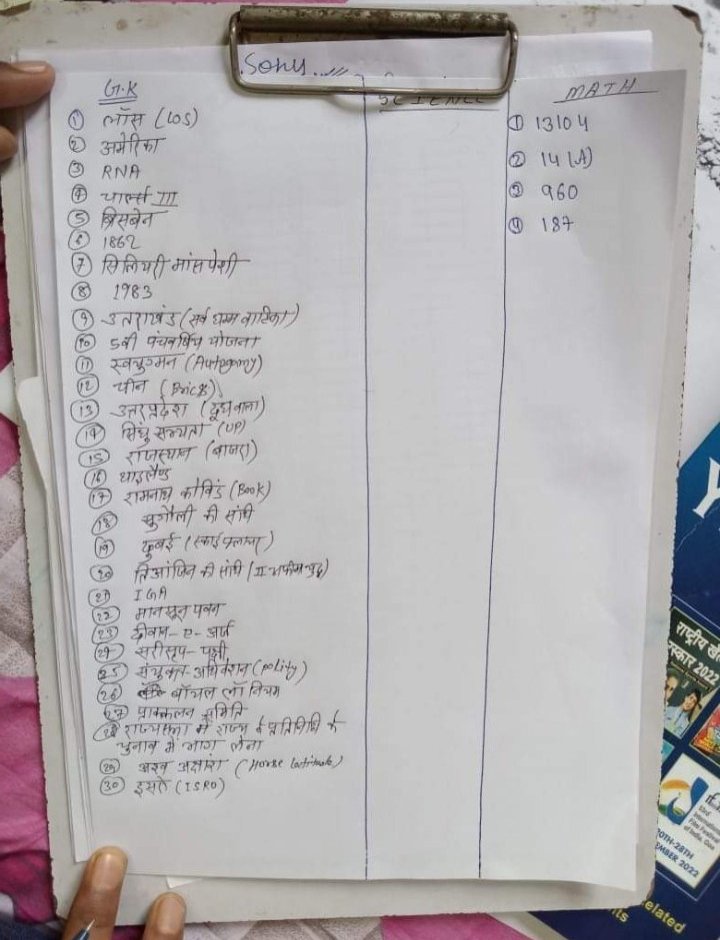 Sony
G.K
① लॉस (LOS)
② अमेरिका
③ RNA
④ चार्ल्स III
⑤ ब्रिसबेन
⑥ 1862
⑦ सिलियरी मांसपेशी
⑧ 1983
⑨ उत्तराखंड (सर्व धर्म वाटिका)
⑩ 5वी पंचवर्षिय योजना
⑪ स्वयुग्मन (Autogamy)
⑫ चीन (Brics)
⑬ उत्तरप्रदेश (दूधवाला)
⑭ सिंधु सभ्यता (UP)
⑮ राजस्थान (बाजरा)
⑯ थाइलैण्ड
⑰ रामनाथ कोविंड (Book)
⑱ सुगौली की संधि
⑲ दुबई (स्काई)
⑳ की संधि (II अफीम युद्ध)
㉑ IGA
㉒ मानसून पवन
㉓ दीवान-ए-अर्ज
㉔ सरीसृप-पक्षी
㉕ संयुक्त अधिवेशन (polity)
㉖ बॉयल लॉ नियम
㉗ प्राक्कलन समिति
㉘ राज्यसभा में राज्य के प्रतिनिधि के
चुनाव में भाग लेना
㉙ अश्व अक्षांश (Horse latitude)
㉚ इसरो (ISRO)
SCIENCE
MATH
① 13104
② 14 (A)
③ 960
④ 187
राष्ट्रीय खे
स्कार 2022
53rd
International
Film Festival
of India, Goa
20TH-28TH
EMBER 2022
elated